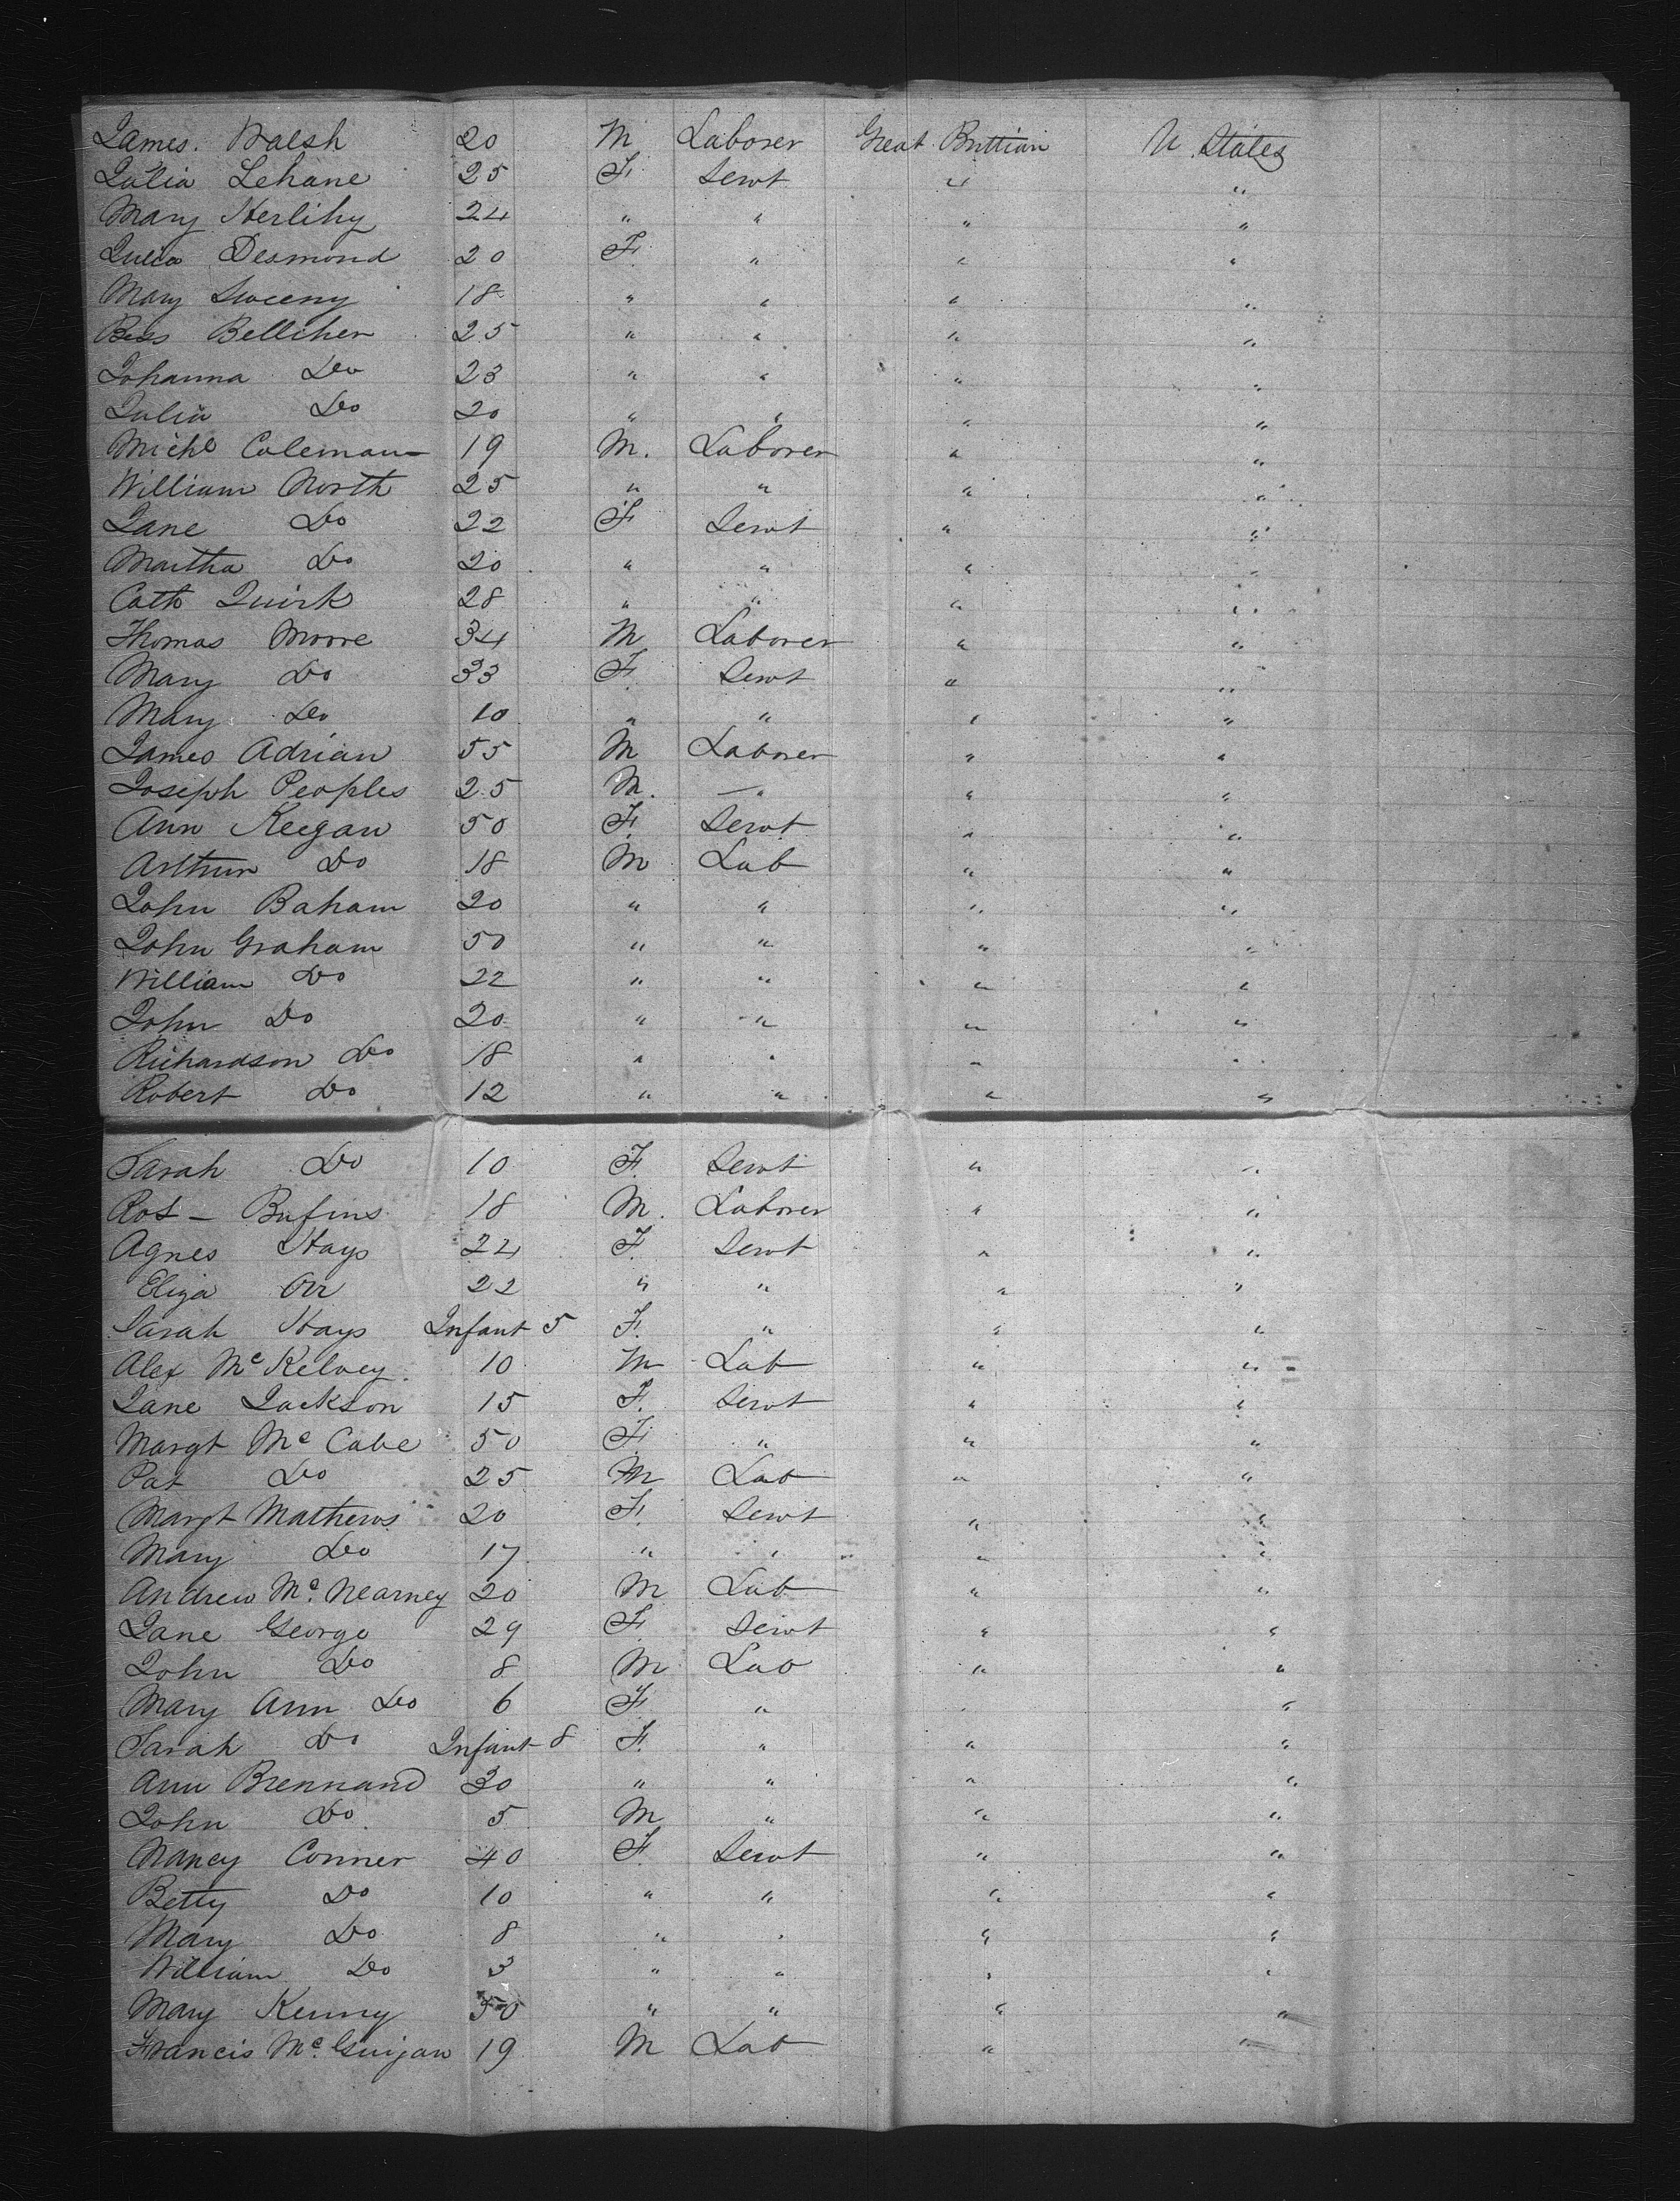 James. Walsh 20 M Laborer Great Brittian U. States
Julia Lehane 25 F. Servt " "
Mary Herlihy 24 " " " "
Julia Desmond 20 F. " " "
Mary Sweeny 18 " " " "
Bess Belliher 25 " " " "
Johanna Do 23 " " " "
Julia Do 20 " " " "
Michl Coleman 19 M. Laborer " "
William North 25 " " " "
Jane Do 22 F Servt " "
Martha Do 20 " " " "
Cath Quirk 28 " " " "
Thomas Moore 34 M Laborer " "
Mary Do 33 F. Servt " "
Mary Do 10 " " " "
James Adrian 55 M Laborer " "
Joseph Peoples 25 M. " " "
Ann Keegan 50 F. Servt " "
Arthur Do 18 M Lab " "
John Baham 20 " " " "
John Graham 50 " " " "
William Do 22 " " " "
John Do 20 " " " "
Richardson Do 18 " " " "
Robert Do 12 " " " "
Sarah Do 10 F. Servt " "
Rot - Bufins 18 M. Laborer " "
Agnes Hays 24 F. Servt " "
Eliza Orr 22 " " " "
Sarah Hays Infant 5 F. " " "
Alex McKelvey 10 M Lab " "
Jane Jackson 15 F. Servt " "
Margt McCabe 50 F. " " "
Pat Do 25 M Lab " "
Margt Mathews 20 F. Servt " "
Mary Do 17 " " " "
Andrew Mc. Nearney 20 M Lab " "
Jane George 29 F. Servt " "
John Do 8 M Lab " "
Mary Ann Do 6 F. " " "
Sarah Do Infant 8 F. " " "
Ann Brennand 30 " " " "
John Do 5 M " " "
Nancy Conner 40 F. Servt " "
Betty Do 10 " " " "
Mary Do 8 " " " "
William Do 3 " " " "
Mary Kenny 50 " " " "
Francis Mc. Guigan 19 M Lab " "